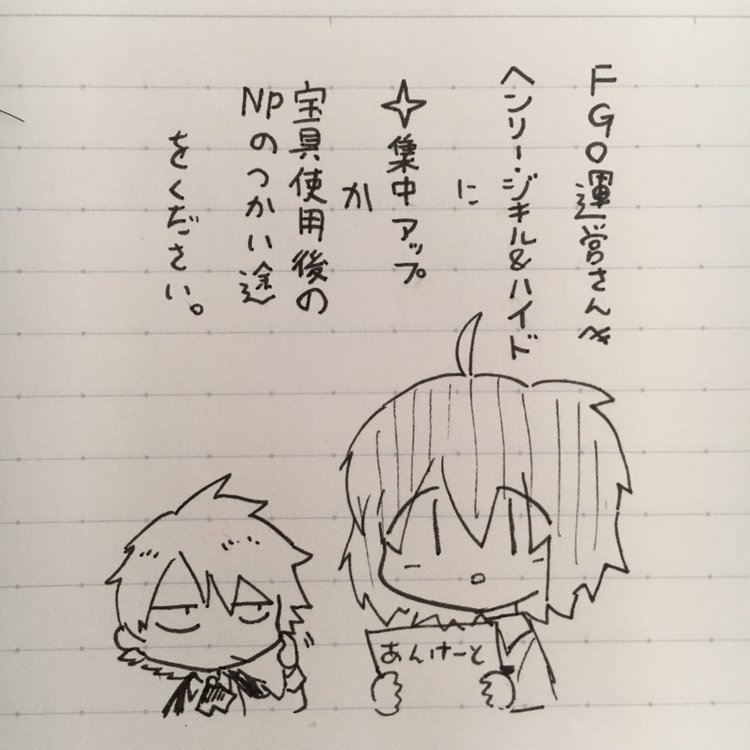 FGO運営さんへ
ヘンリー・ジキル&ハイド
に
✧集中アップ
か
宝具使用後の
NPのつかい途
をください。
あんけーと